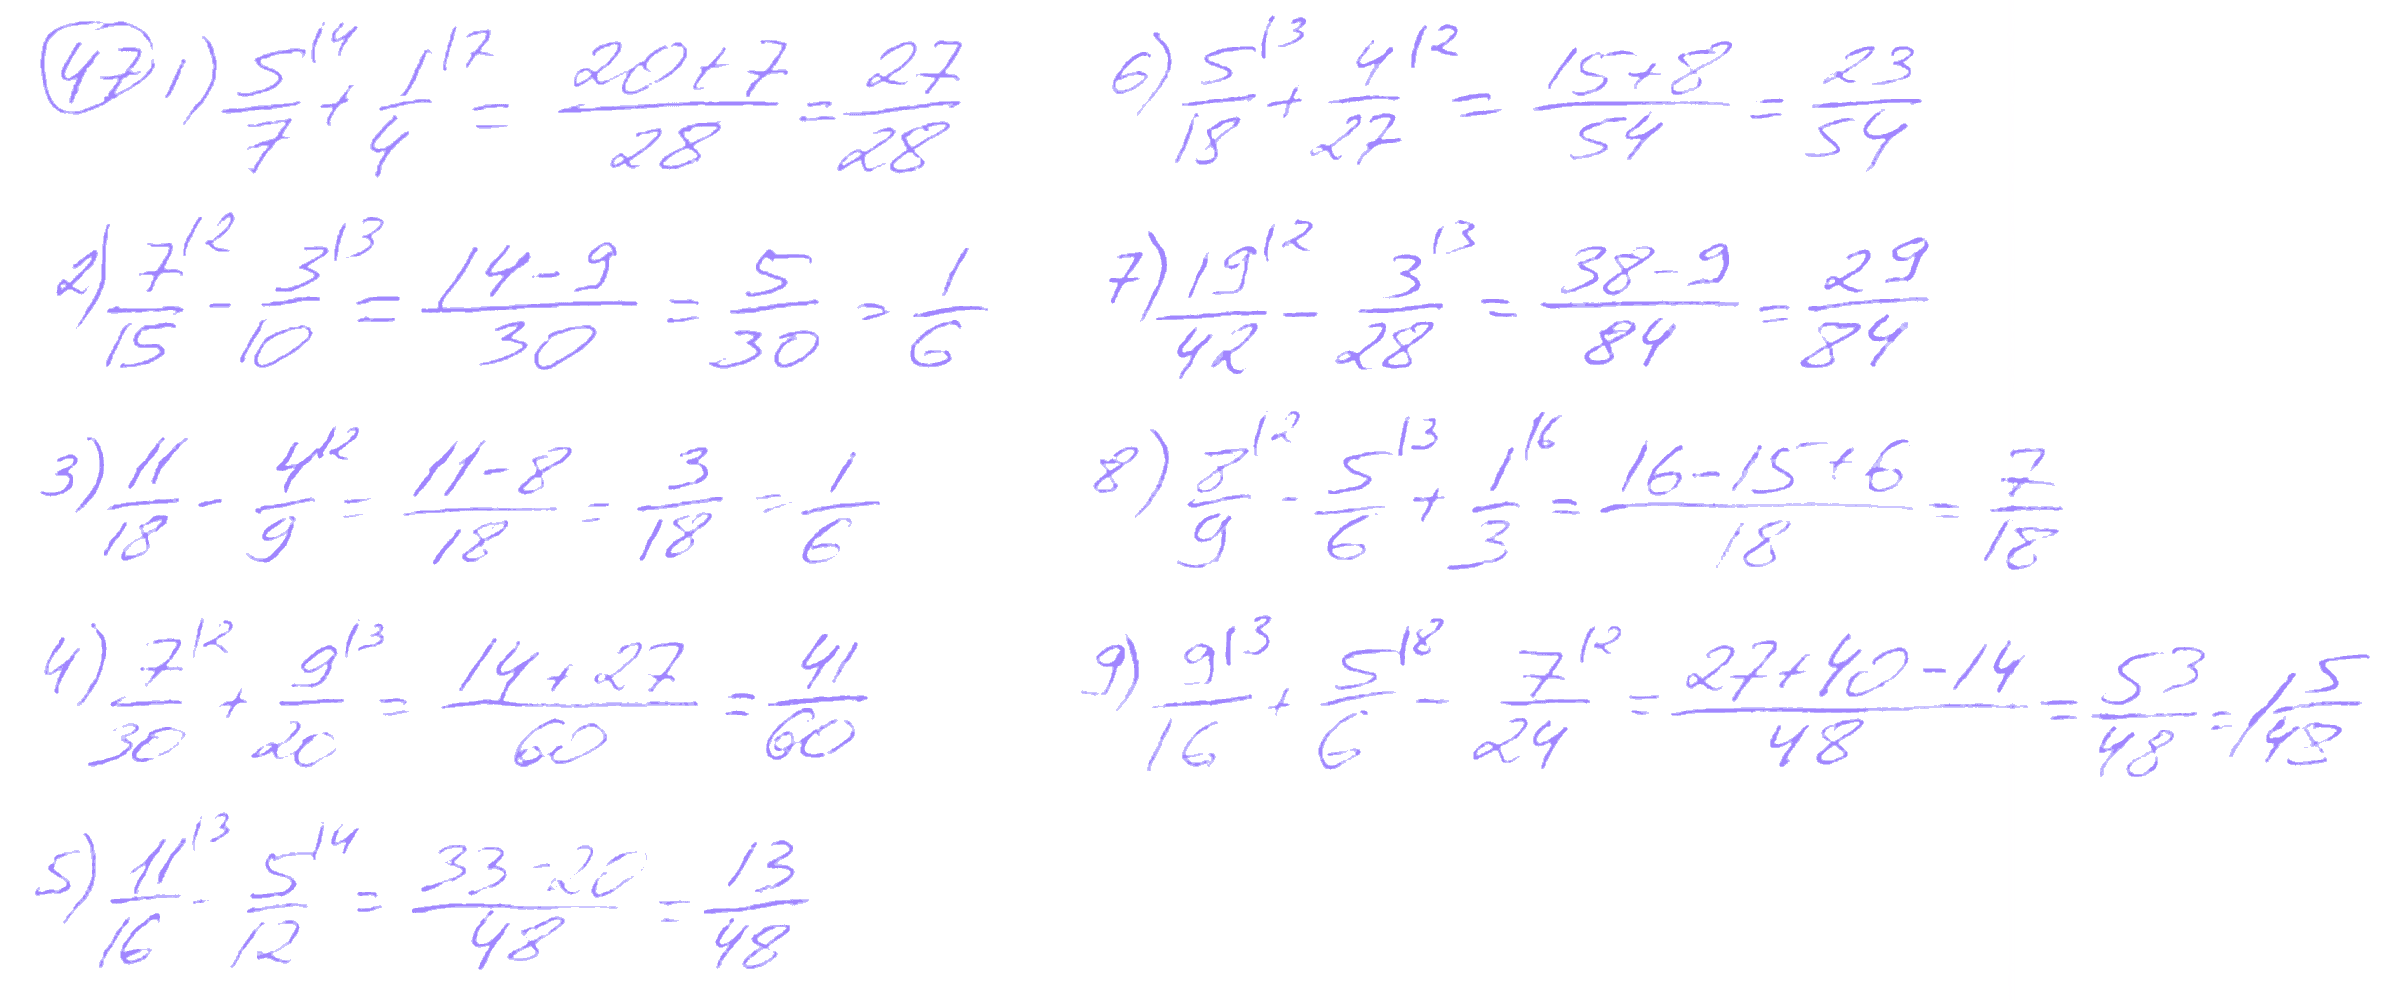 47 1) 5/7 |4 + 1/4 |7 = (20+7)/28 = 27/28
2) 7/15 |2 - 3/10 |3 = (14-9)/30 = 5/30 = 1/6
3) 11/18 - 4/9 |2 = (11-8)/18 = 3/18 = 1/6
4) 7/30 |2 + 9/20 |3 = (14+27)/60 = 41/60
5) 11/16 |3 - 5/12 |4 = (33-20)/48 = 13/48
6) 5/18 |3 + 4/27 |2 = (15+8)/54 = 23/54
7) 19/42 |2 - 3/28 |3 = (38-9)/84 = 29/84
8) 8/9 |2 - 5/6 |3 + 1/3 |6 = (16-15+6)/18 = 7/18
9) 9/16 |3 + 5/6 |8 - 7/24 |2 = (27+40-14)/48 = 53/48 = 1 5/48